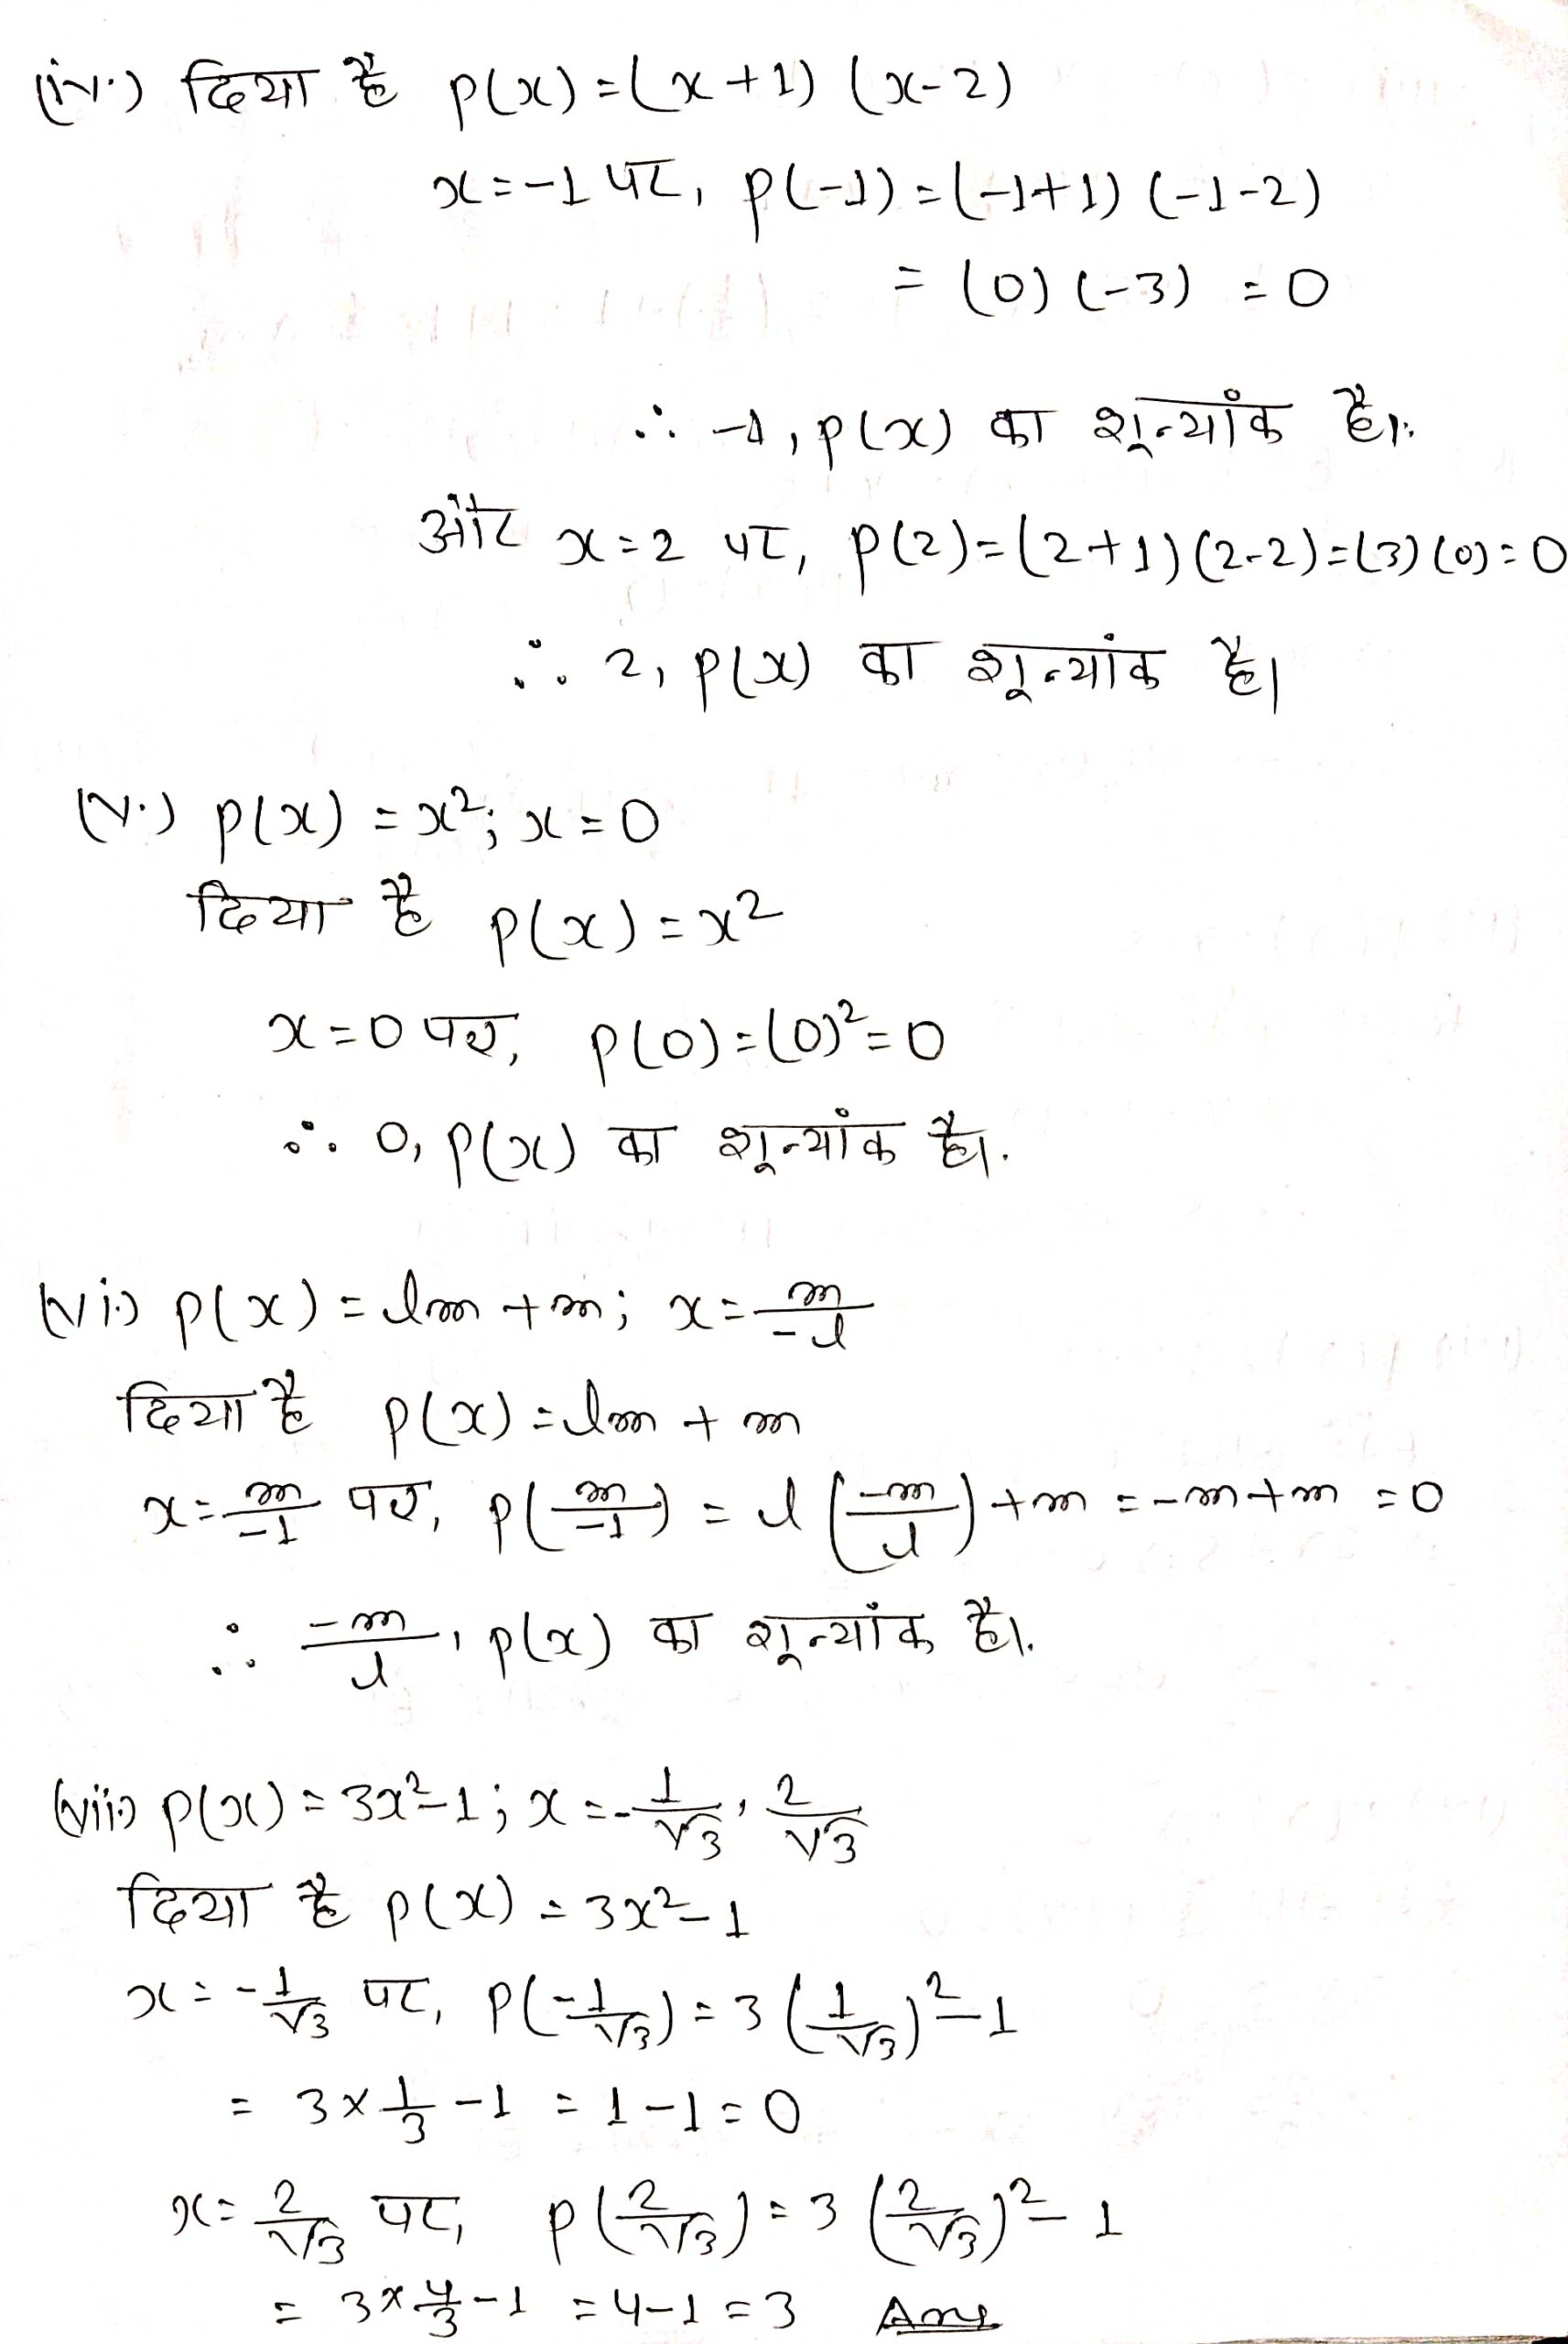 (iv.) दिया है p(x) = (x + 1) (x - 2)
x = -1 पर, p(-1) = (-1+1) (-1-2)
= (0) (-3) = 0
∴ -1, p(x) का शून्यांक है।
और x = 2 पर, p(2) = (2+1) (2-2) = (3) (0) = 0
∴ 2, p(x) का शून्यांक है।
(v.) p(x) = x²; x = 0
दिया है p(x) = x²
x = 0 पर, p(0) = (0)² = 0
∴ 0, p(x) का शून्यांक है।
(vi.) p(x) = lm + m; x = m/-l
दिया है p(x) = lm + m
x = m/-1 पर, p(m/-1) = l (-m/l) + m = -m + m = 0
∴ -m/l, p(x) का शून्यांक है।
(vii.) p(x) = 3x² - 1; x = -1/√3, 2/√3
दिया है p(x) = 3x² - 1
x = -1/√3 पर, p(-1/√3) = 3 (1/√3)² - 1
= 3 × 1/3 - 1 = 1 - 1 = 0
x = 2/√3 पर, p(2/√3) = 3 (2/√3)² - 1
= 3 × 4/3 - 1 = 4 - 1 = 3 Ans